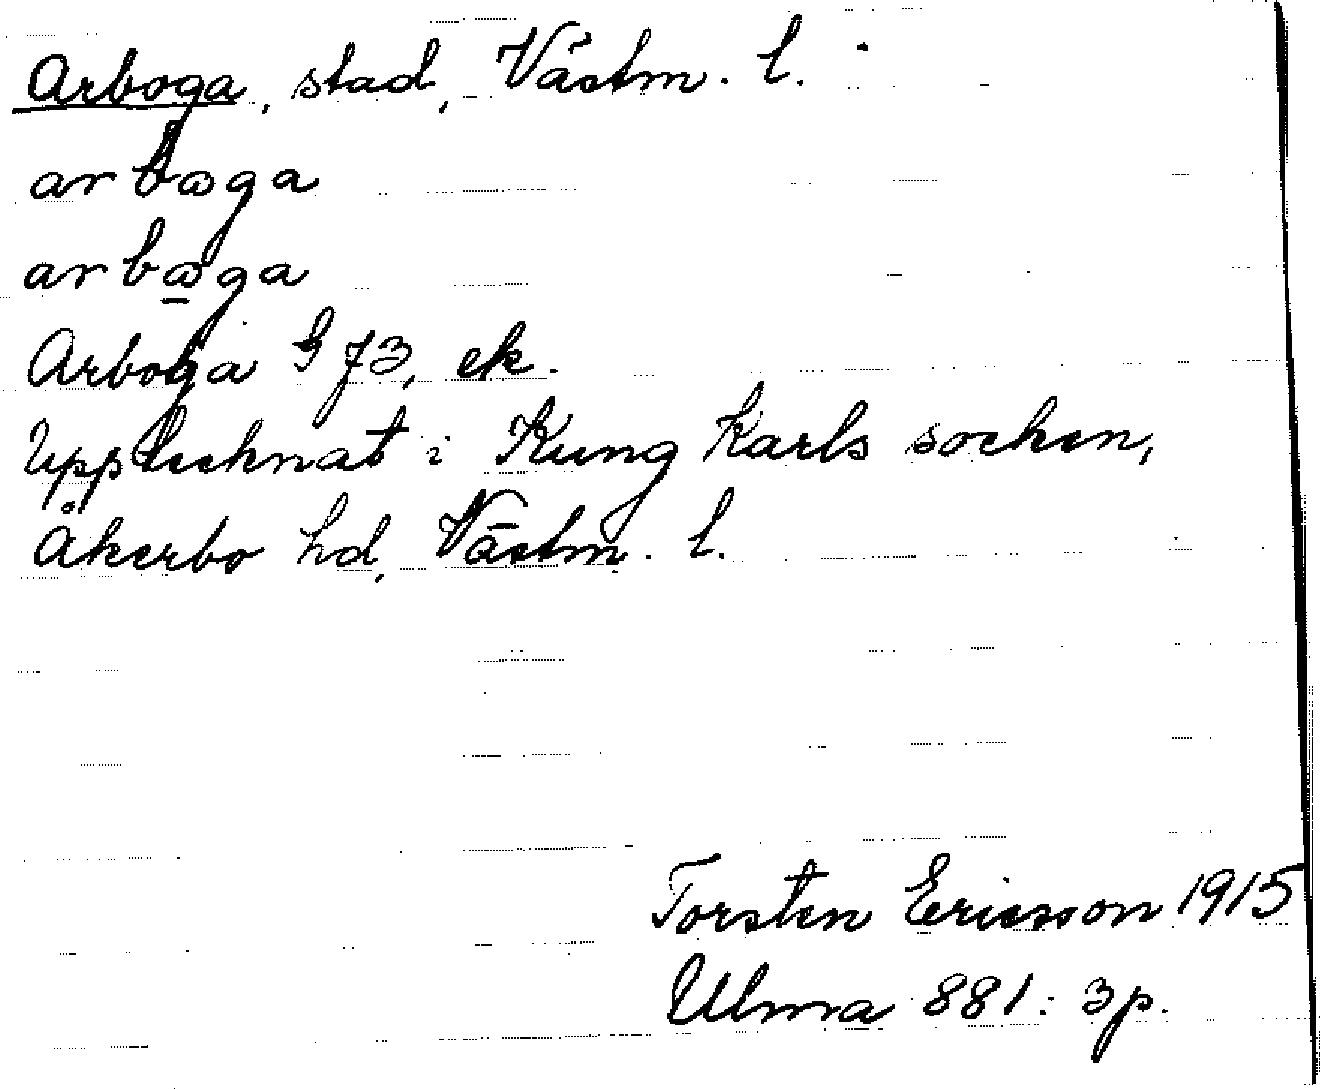 Arboga, stad, Västm. l.
arbωga
arbω̲ga
Arboga G 73, ek.
Upptecknat i Kung Karls socken,
Åkerbo hd, Västm. l.
Torsten Ericsson 1915
Ulma 881: 3 p.